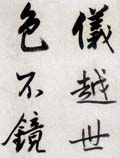 儀越世
色不鏡